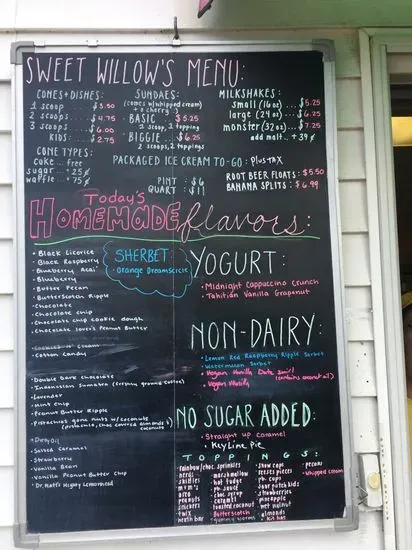 SWEET WILLOW'S MENU:
CONES + DISHES:
1 scoop ... $3.50
2 scoops ..... $4.75
3 scoops ..... $6.00
KIDS: ..... $2.75
CONE TYPES:
cake ... free
sugar ... +25¢
waffle ... +75¢
SUNDAES:
(comes w/whipped cream)
+ a cherry :)
BASIC .... $5.25
1 scoop, 1 topping
BIGGIE .... $6.25
2 scoops, 2 toppings
MILKSHAKES:
small (16 oz) ... $5.25
large (24 oz) ... $6.25
monster (32 oz) ... $7.25
add malt .. + 39¢
PACKAGED ICE CREAM TO-GO: plus tax
PINT : $6
QUART : $11
ROOT BEER FLOATS: $5.50
BANANA SPLITS: $6.99
Today's
HOMEMADE flavors:
• Black Licorice
• Black Raspberry
• Blueberry Acai
• Blueberry
• Butter Pecan
• Butterscotch Ripple
• Chocolate
• Chocolate chip
• Chocolate chip cookie dough
• Chocolate Lover's Peanut Butter
• Cookies n' cream
• Cotton Candy
• Double Dark Chocolate
• Indonesian Sumatra (strong ground coffee)
• Lavender
• Mint chip
• Peanut Butter Ripple
• Pistachios gone nuts w/coconuts
(pistachio, choc covered almonds &
coconuts
• Salted Caramel
• Strawberry
• Vanilla Bean
• Vanilla Peanut Butter Chip
• Dr. Matt's Highly Lemonhead
SHERBET
• Orange Dreamsicle
YOGURT:
• Midnight Cappuccino Crunch
• Tahitian Vanilla Grapenut
NON-DAIRY:
• Lemon Red Raspberry Ripple Sorbet
• Watermelon Sorbet
• Vegan Vanilla Date Swirl
(contains coconut oil)
• Vegan
NO SUGAR ADDED:
• Straight up Caramel
• Key Lime Pie
TOPPINGS:
• rainbow/choc. sprinkles
• nerds
• skittles
• m+m's
• oreo
• peanuts
• snickers
• twix
• heath bar
• marshmallow
• hot fudge
• pb. sauce
• choc syrup
• caramel
• toasted coconut
• Butterscotch
• gummy worms
• snow caps
• reeses pieces
• pb. cups
• sour patch kids
• strawberries
• pineapple
• wet walnut
• almonds
• kit kat
• pecans
• whipped cream